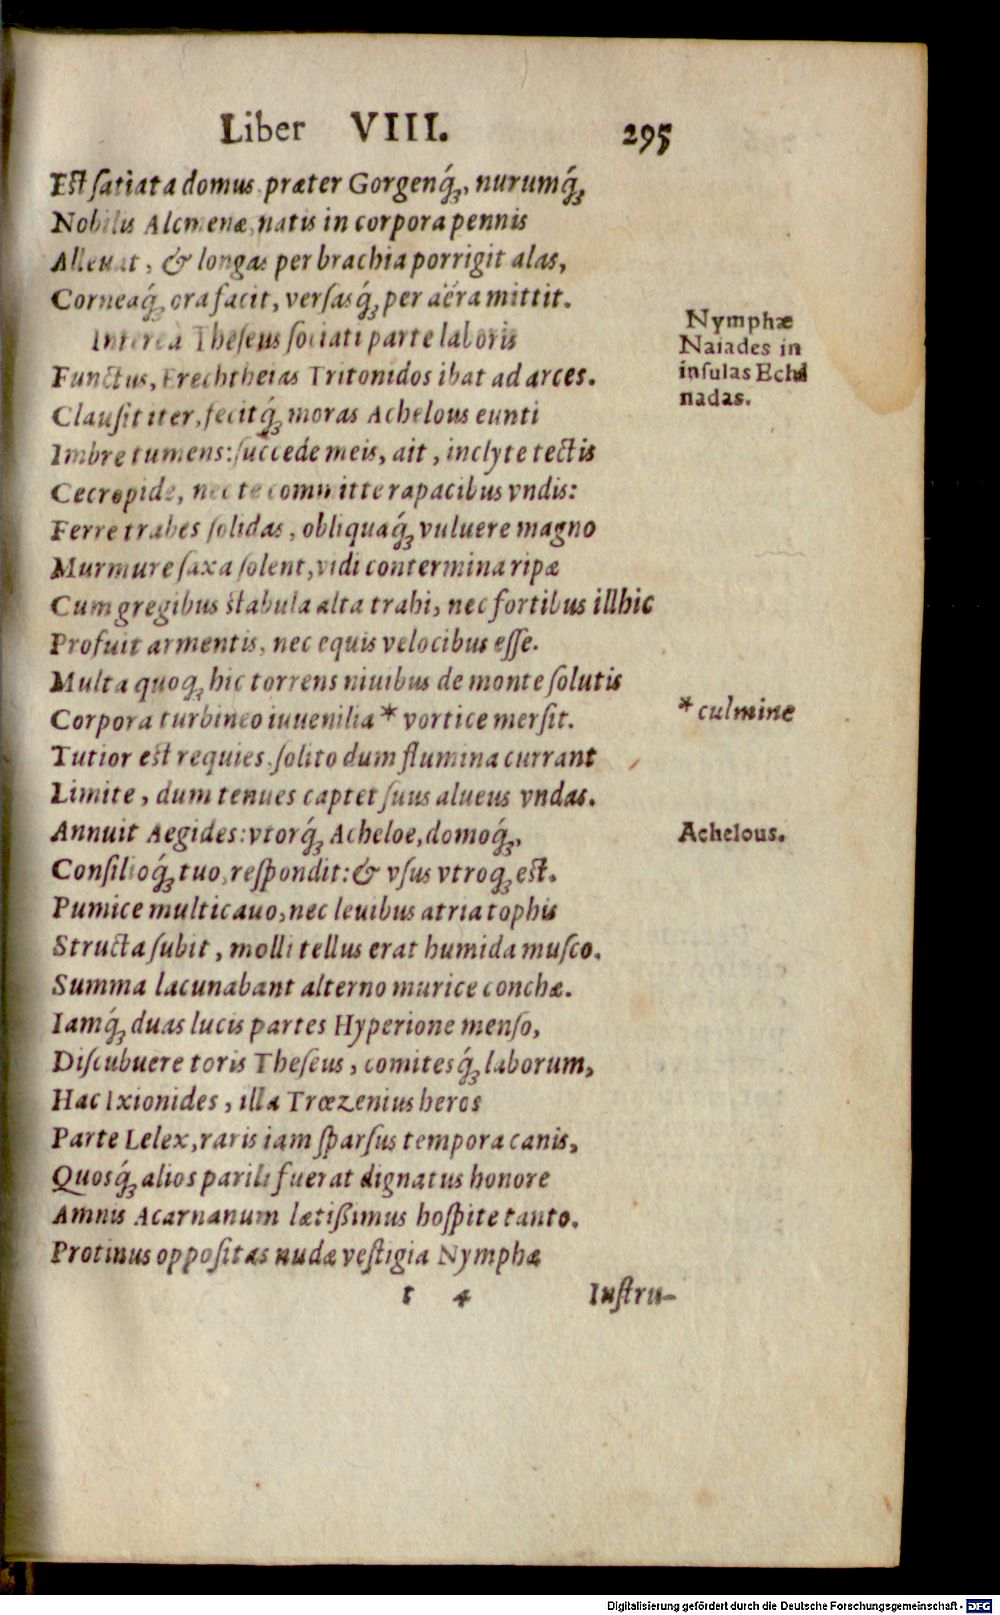 Liber VIII. 295
Est ſatiata domus præter Gorgenq́;, nurumq́;
Nobilis Alcmenæ, natis in corpora pennis
Alleuat, & longas per brachia porrigit alas,
Corneaq́; ora facit, verſasq́; per aëra mittit.
Interea Theſeus ſociati parte laboris
Functus, Erechtheias Tritonidos ibat ad arces.
Clauſit iter, fecitq́; moras Achelous eunti
Imbre tumens: ſuccede meis, ait, inclyte tectis
Cecropide, nec te committe rapacibus vndis:
Ferre trabes ſolidas, obliquaq́; vuluere magno
Murmure ſaxa ſolent, vidi contermina ripæ
Cum gregibus ſtabula alta trahi, nec fortibus illhic
Profuit armentis, nec equis velocibus eſſe.
Multa quoq; hic torrens niuibus de monte ſolutis
Corpora turbineo iuuenilia * vortice merſit.
Tutior eſt requies, ſolito dum flumina currant
Limite, dum tenues captet ſuus alueus vndas.
Annuit Aegides: vtorq́; Acheloe, domoq́;,
Conſilioq́; tuo, reſpondit: & vſus vtroq; eſt.
Pumice multicauo, nec leuibus atria tophis
Structa ſubit, molli tellus erat humida muſco.
Summa lacunabant alterno murice conchæ.
Iamq́; duas lucis partes Hyperione menſo,
Diſcubuere toris Theſeus, comitesq́; laborum,
Hac Ixionides, illa Trœzenius heros
Parte Lelex, raris iam ſparſus tempora canis,
Quosq́; alios parili fuerat dignatus honore
Amnis Acarnanum lætißimus hoſpite tanto.
Protinus oppoſitas nudæ veſtigia Nymphæ
t 4 Inſtru-
Nymphæ
Naiades in
inſulas Echi
nadas.
* culmine
Achelous.
Digitalisierung gefördert durch die Deutsche Forschungsgemeinschaft - DFG